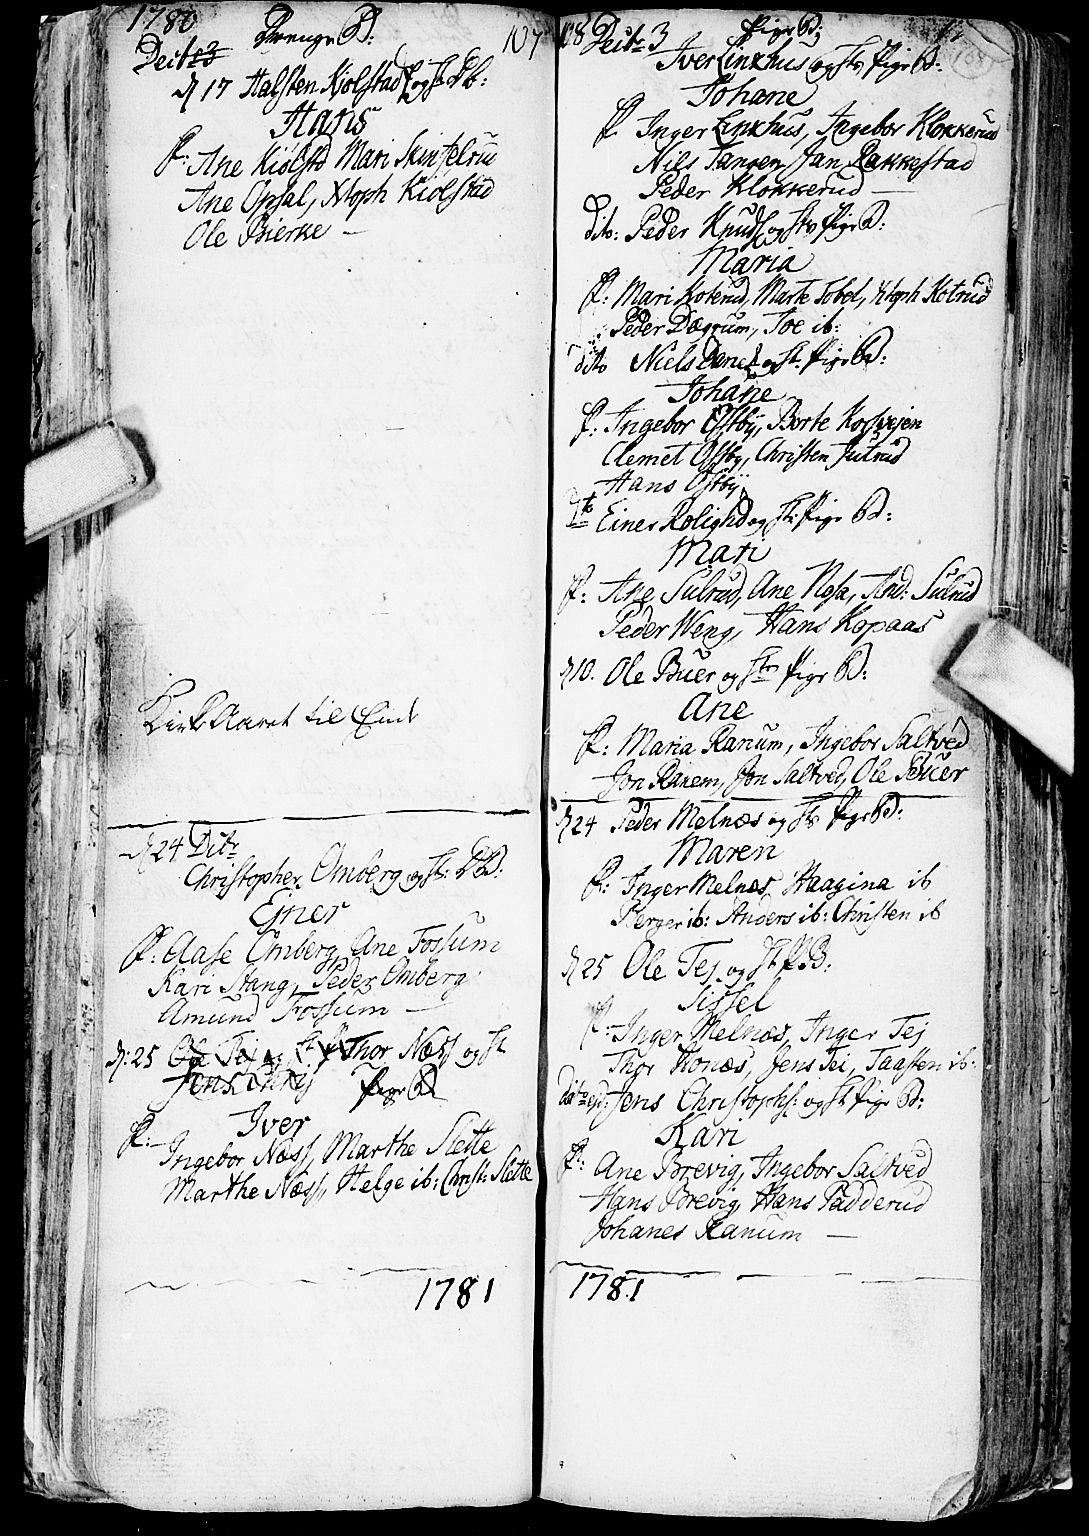 1780
Drenge B: 107
Decbr 3
d 17 Halsten Kiølstad og H: D b:
Hans
F: Ane Kiølstd Mari Skinselru
Ane Opsal, Xstoph Kiølstad
Ole Bierke —
Kirke Aaret til Ende
d 24 Dito
Christopher Omberg og H: D B:
Ejner
F: Aase Omberg, Ane Fossum
Kari Stang, Peder Omberg
Amund Fossum —
d: 25 Ole Tej og Thor Næss og H
Jens Pige B
Iver
F:
Ingebor Næss, Marthe Slette
Marthe Næss, Helge ib: Christ: Slette
1781
108 Decbr 3 Pige B:
Iver Linkhus og H Pige B:
Johane
F Inger Linkhus, Ingebor Klokkerud
Nils Tangen Jan Rakkestad
Peder Klokkerud —
dito: Peder Knuds og H Pige B:
Maria
F: Mari Koterud, Marte Tobel, Xstoph Kotrud
Peder Dægrum, Joe ib:
dito Niels og H: Pige B:
Johane
F: Ingebor Østby, Borte
Clemet Østby, Christen Jutrud
Hans Østby
Dto Einer Rolighd og H: Pige B:
Mari
F: Ane Sulrud, Ane Nosk, And: Sulrud
Peder Weng, Hans Kopaas
d 10. Ole Buer og H Pige B:
Ane
F: Maria Ranum, Ingebor Saltved
Jon Ranem, Jon Saltved, Ole Buer
d 24 Peder Melnæs og H Pige B:
Maren
F: Inger Melnæs Haagina ib
Børger ib: Anders ib: Christen ib
d 25 Ole Tej og H P B:
Sissel
F: Inger Melnæs, Inger Tej
Thor Honæs, Jens Tei, Taasten ib:
Jens Christophs: og H Pige B:
Kari
F: Ane Brevig, Ingebor Saltved
Hans Brevig, Hans Padderud
Johanes Ranum —
1781